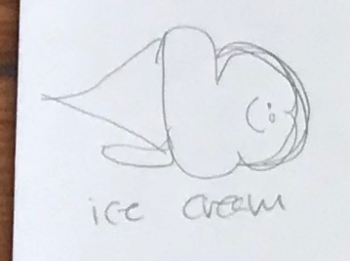 ice cream